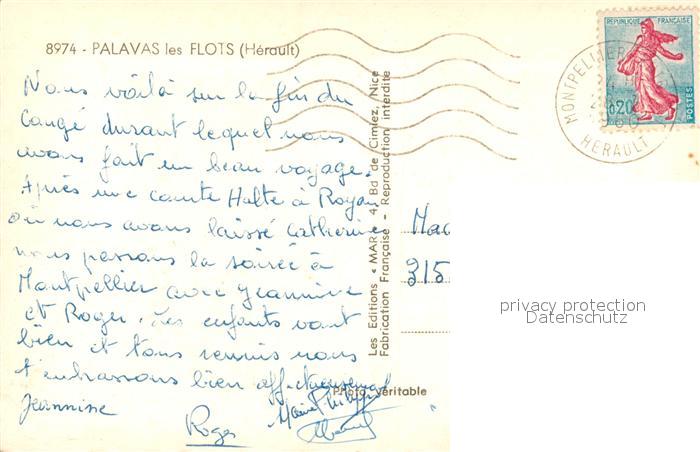 8974 - PALAVAS les FLOTS (Hérault)
Nous voilà sur la fin du
Congé durant lequel nous
avons fait un beau voyage.
Après une courte Halte à Royan
où nous avons laissé Catherine
nous passons la soirée à
Montpellier avec Jeannine
et Roger. Les enfants vont
bien et tous réunis nous
t'embrassons bien affectueusement
Jeannine
Roger
Photo véritable
Les Editions « MAR » 4, Bd de Cimiez, Nice
Fabrication Française - Reproduction interdite
REPUBLIQUE FRANÇAISE
0,20
POSTES
MONTPELLIER
HERAULT
Mad
315
privacy protection
Datenschutz